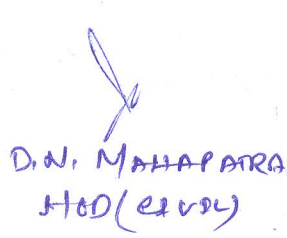 D.N. MAHAPATRA
HOD (CIVIL)